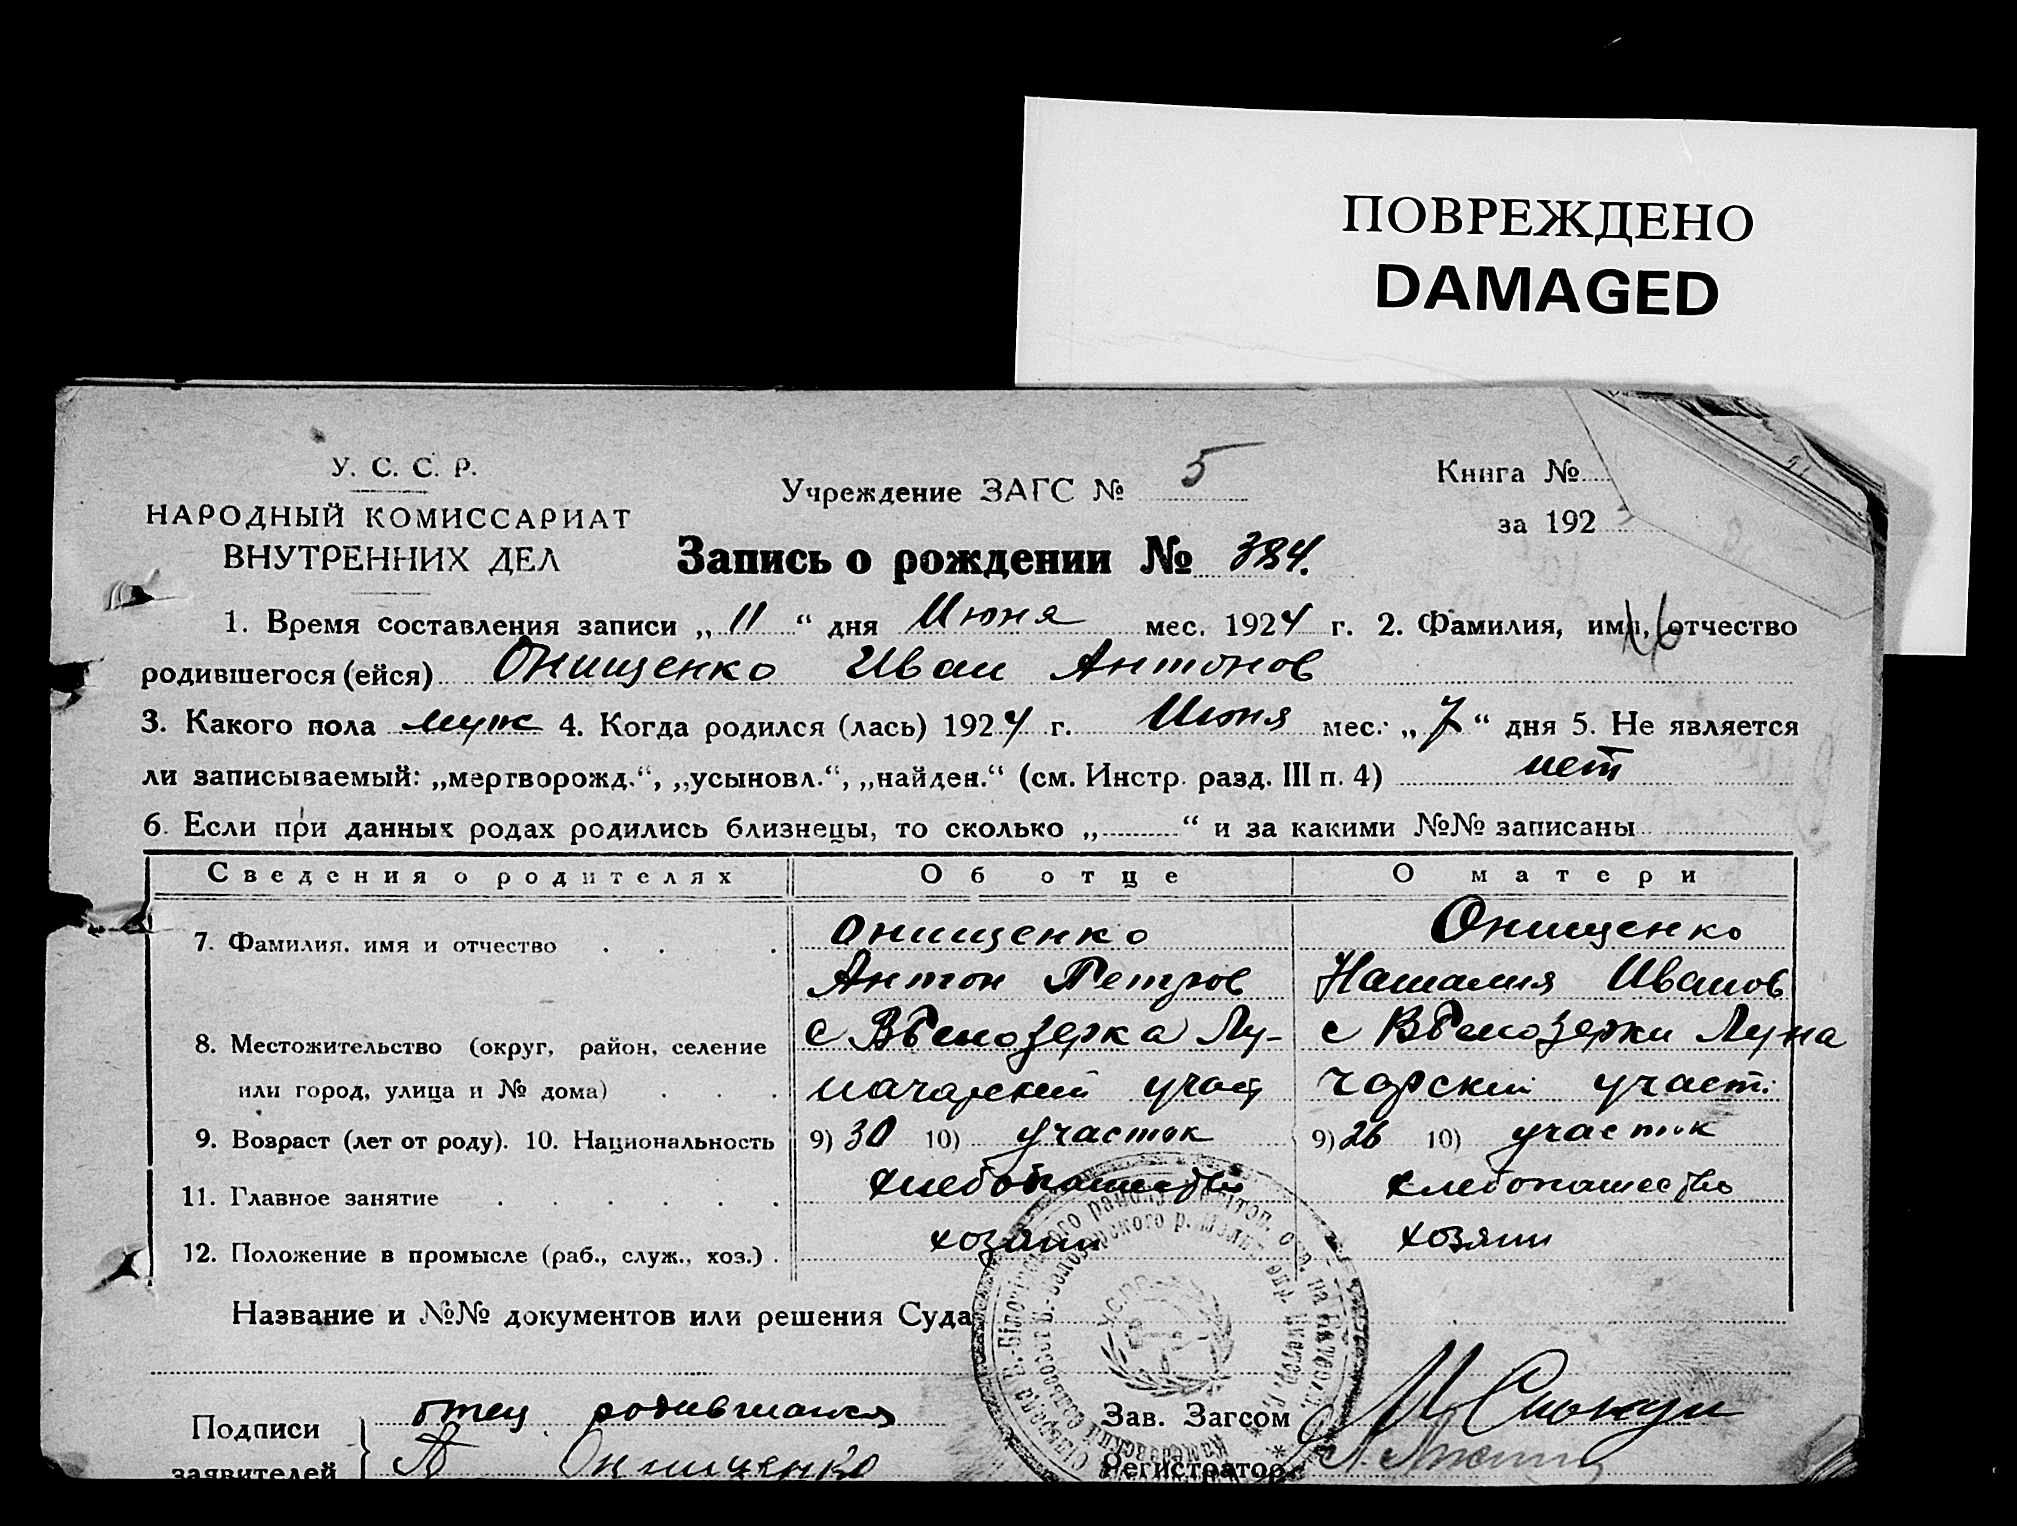 ПОВРЕЖДЕНО
DAMAGED
У. С. С. Р.
НАРОДНЫЙ КОМИССАРИАТ
ВНУТРЕННИХ ДЕЛ
Учреждение ЗАГС № 5
Книга №
за 192
Запись о рождении № 384.
1. Время составления записи „ 11 “ дня Июня мес. 1924 г. 2. Фамилия, имя, отчество
родившегося (ейся) Онищенко Иван Антонов
3. Какого пола муж 4. Когда родился (лась) 1924 г. Июня мес.: „ 7 “ дня 5. Не является
ли записываемый: „мертворожд.“, „усыновл.“, „найден.“ (см. Инстр. разд. III п. 4) нет
6. Если при данных родах родились близнецы, то сколько „ “ и за какими №№ записаны
Сведения о родителях Об отце О матери
7. Фамилия, имя и отчество Онищенко Онищенко
Антон Петров Наталия Иванов
8. Местожительство (округ, район, селение с Вбелозерка Лу- с Вбелозерки Луна
или город, улица и № дома) начарский участ чарский участ.
9. Возраст (лет от роду). 10. Национальность 9) 30 10) участок 9) 26 10) участок
11. Главное занятие хлебопашество хлебопашество
12. Положение в промысле (раб., служ., хоз.) хозяин хозяин
Название и №№ документов или решения Суда
УСРР
Подписи отец родившаяся Зав. Загсом
заявителей А Онищенко Регистратор